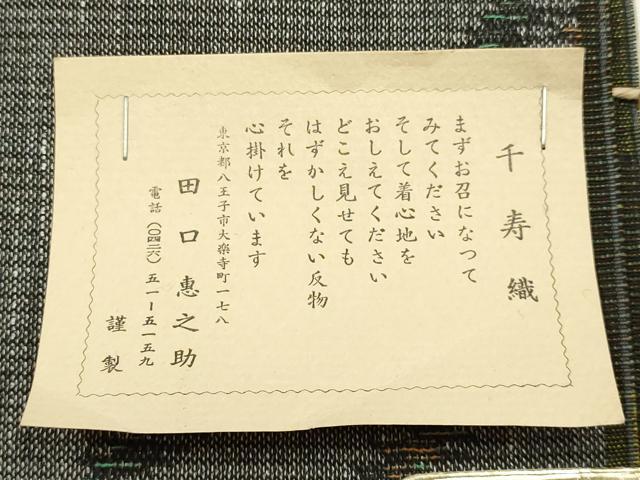 千寿織
まずお召になつて
みてください
そして着心地を
おしえてください
どこえ見せても
はずかしくない反物
それを
心掛けています
東京都八王子市大楽寺町一七八
田口惠之助
電話（〇四二六）五一ー五一五九
謹製